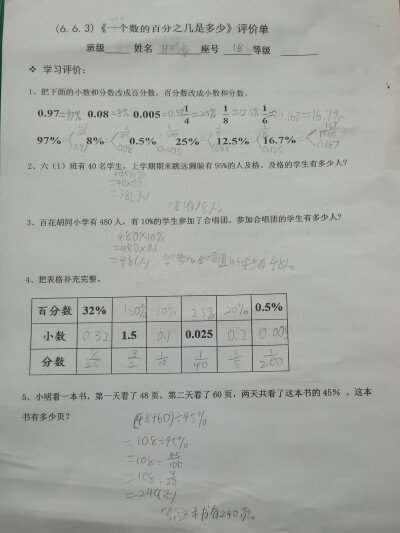 (6.6.3)《一个数的百分之几是多少》评价单
班级 姓名 座号 18 等级
❖ 学习评价:
1、把下面的小数和分数改成百分数，百分数改成小数和分数。
0.97=97% 0.08=8% 0.005=0.5% 1/4=25% 1/8=12.5% 1/6≈0.167=16.7%
97% 8% 0.5% 25% 12.5% 16.7%
2、六（1）班有40名学生，上学期期末跳远测验有95%的人及格。及格的学生有多少人?
40×95%
=40×0.95
=38(人)
3、百花胡同小学有480人，有10%的学生参加了合唱团。参加合唱团的学生有多少人?
480×10%
=480×0.1
=48(人)
4、把表格补充完整。
百分数 32% 150% 10% 2.5% 20% 0.5%
小数 0.32 1.5 0.1 0.025 0.2 0.005
分数 8/25 3/2 1/10 1/40 1/5 1/200
5、小明看一本书，第一天看了48页，第二天看了60页，两天共看了这本书的45%。这本
书有多少页?
(48+60)÷45%
=108÷45%
=108÷45/100
=108÷9/20
=240(页)
答:这本书有240页。